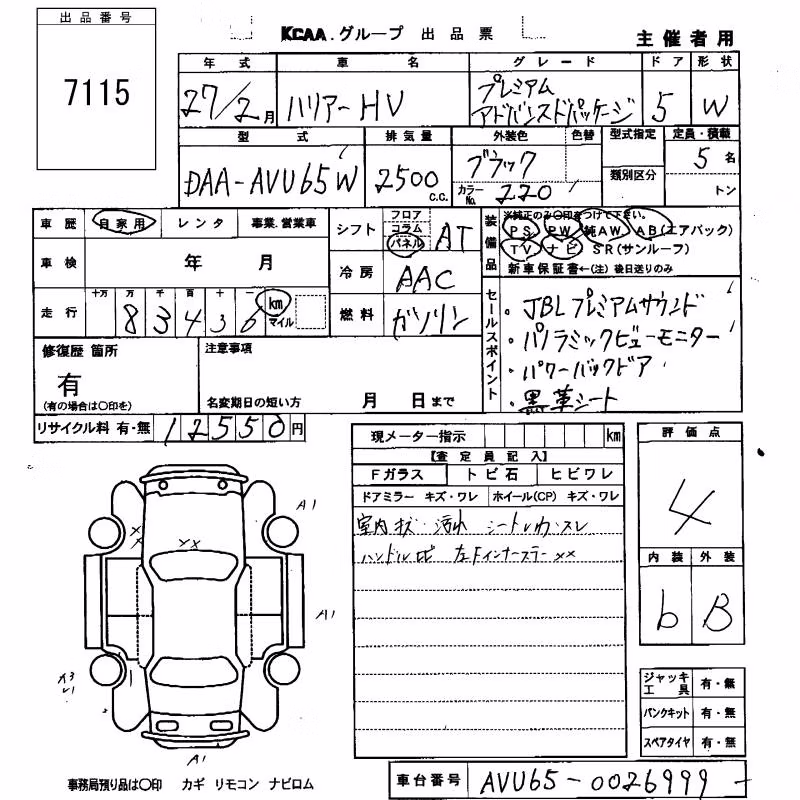 出品番号
7115
KCAA.グループ 出品票
主催者用
年式 車名 グレード ドア 形状
27/2月 ハリアーHV プレミアム アドバンスドパッケージ 5 W
型式 排気量 外装色 色替 型式指定 定員・積載
DAA-AVU65W 2500 C.C. ブラック 5名
カラーNo. 220 類別区分 トン
車歴 自家用 レンタ 事業.営業車
車検 年 月
走行 十万 万 千 百 十 一 km マイル
8 3 4 3 6
シフト フロア コラム パネル AT
冷房 AAC
燃料 ガソリン
装備品 ※純正のみ○印をつけて下さい。
PS PW 純AW AB(エアバック)
TV ナビ SR(サンルーフ)
新車保証書←(注)後日送りのみ
セールスポイント
・JBLプレミアムサウンド
・パノラミックビューモニター
・パワーバックドア
・黒革シート
修復歴 箇所
有
(有の場合は○印を)
注意事項
名変期日の短い方 月 日まで
リサイクル料 有・無 12550円
現メーター指示 km
【査定員記入】
Fガラス トビ石 ヒビワレ
ドアミラー キズ・ワレ ホイール(CP) キズ・ワレ
室内キズ・汚れ
ハンドル
左Fインナーステー XX
評価点
4
内装 外装
b B
A1
XX
XX
A1
A3
A1
ジャッキ工具 有・無
パンクキット 有・無
スペアタイヤ 有・無
事務局預り品は○印 カギ リモコン ナビロム
車台番号 AVU65-0026999